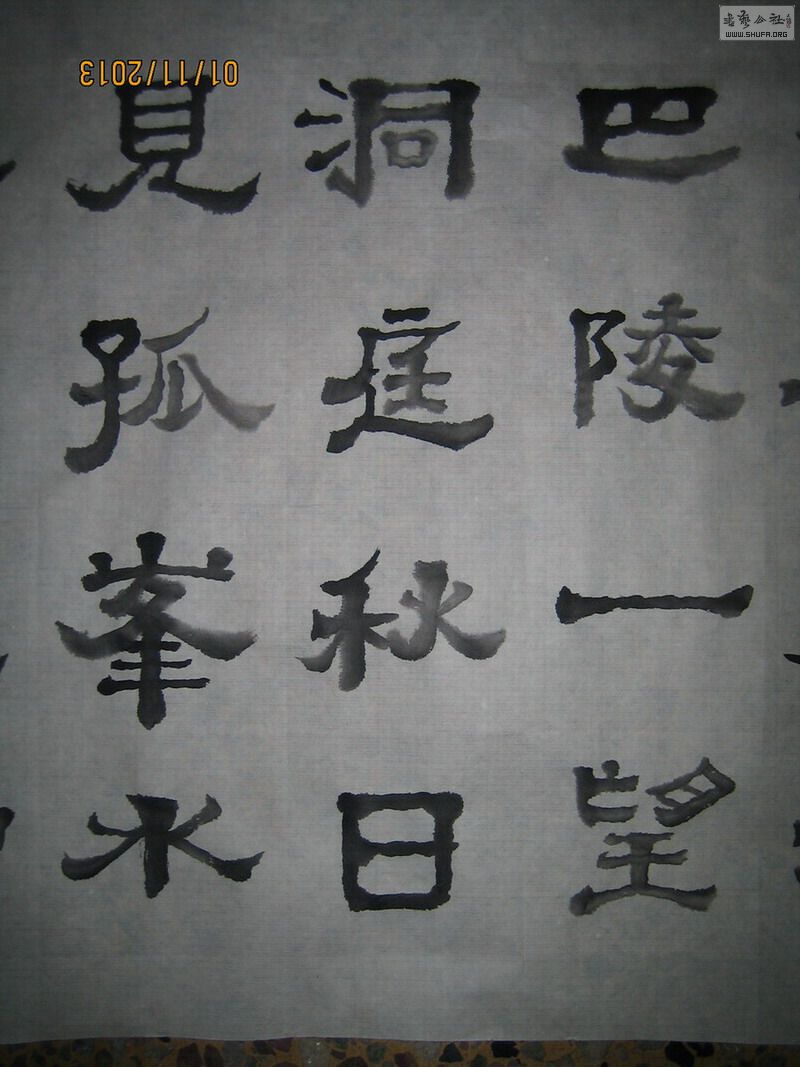 巴陵一望
洞庭秋日
見孤峯水
01/11/2013
书艺公社
WWW.SHUFA.ORG